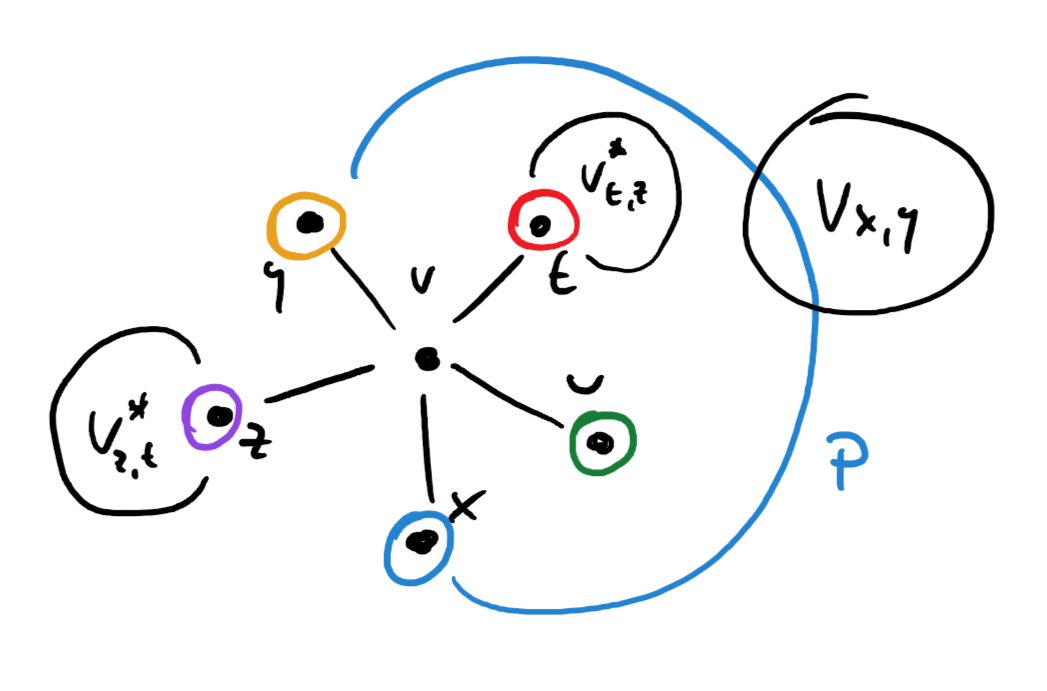 V*t,z
Vx,y
y
v
t
V*z,t
z
u
x
P